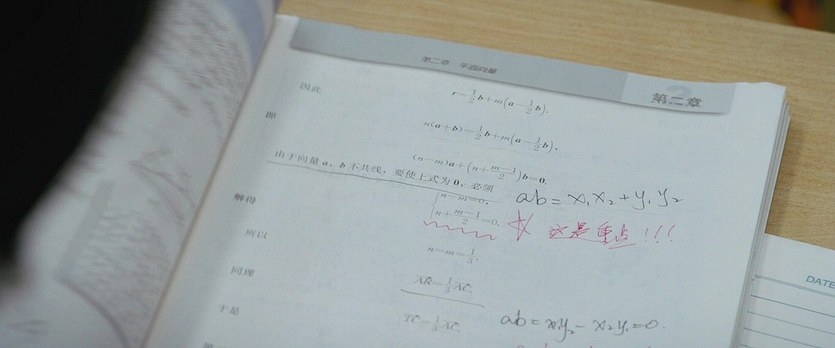 第二章 平面向量
第二章
因此 r=\frac{1}{2}b+m(a-\frac{1}{2}b).
即 n(a+b)=\frac{1}{2}b+m(a-\frac{1}{2}b),
(n-m)a+(n+\frac{m-1}{2})b=0.
由于向量a,b不共线，要使上式为0，必须
ab=x₁x₂+y₁y₂
n-m=0,
n+\frac{m-1}{2}=0.
这是重点!!!
解得
n=m=\frac{1}{3}.
所以 AR=\frac{1}{3}AC.
同理 TC=\frac{1}{3}AC.
ab=x₁y₂-x₂y₁=0.
于是
DATE